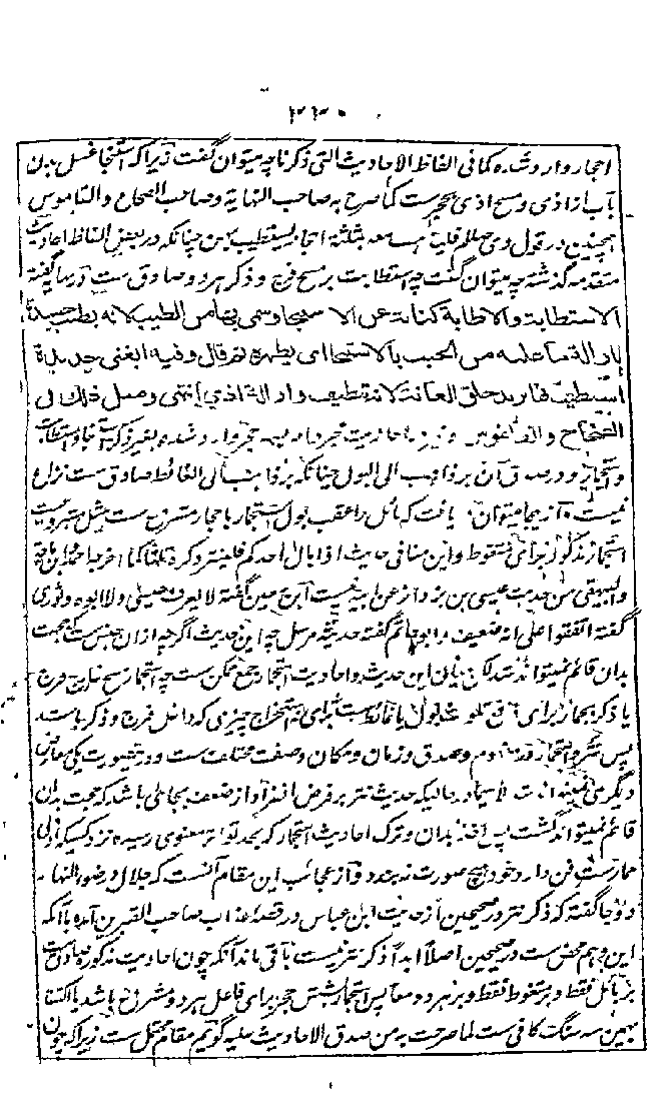 ۲۲۰
احجار وارد شده کما فی الفاظ الاحادیث التی ذکرنا چه میتوان گفت زیرا که استنجا غسل بدن
بآب از اذی و مسح اذی بحجر ست کما صرح به صاحب النهایة و صاحب الصحاح و القاموس
همچنین در قول وی صللم فلیذهب معه بثلثة احجار یستطیب بهن چنانکه در بعض الفاظ احادیث
متقدمه گذشته چه میتوان گفت چه استطابت بر مسح فرج و ذکر هر دو صادق ست در نهایه گفته
الاستطابة والاطابة کنایة عن الاستنجا وسمی بها من الطیب لانه یطیب جسده
بازالة ما علیه من الخبث بالاستنجا ای یطهره ثم قال وفیه ابغنی حدیدة
استطیب بها یرید حلق العانة لانه تنظیف وازالة اذی انتهی ومثل ذلک فی
الصحاح والقاموس و نیز در احادیث
و استجمار و در صدق آن بر ذاهب الی البول چنانکه بر ذاهب الی الغائط صادق ست نزاع
نیست و از یجا میتوان دریافت که بائل را عقب بول استجمار باحجار مشروع ست مثل مشروعیت
استجمار مذکور از برای متغوط و این منافی حدیث اذا بال احدکم فلینتر ذکره ثلثا کما اخرجه احمد و ابن ماجه
و البیهقی من حدیث عیسی بن یزداد عن ابیه نیست ابن معین گفته لا یعرف عیسی ولا ابوه و نووی
گفته اتفقوا علی انه ضعیف و ابو حاتم گفته حدیثه مرسل چه این حدیث اگرچه از آن جنس ست که حجت
بدان قائم نمیتواند شد لکن میان این حدیث و احادیث استجمار جمع ممکن ست چه استجمار مسح خارج فرج
یا ذکر بحجار برای بول یا غائط ست برای استخراج چیزی که داخل فرج و ذکر باشد
پس نتر و استجمار در مفهوم و صدق و زمان و مکان و صفت مختلف ست و درین صورت یکی معارض
دیگر نمی تواند شد لا سیما در حالیکه حدیث نتر بر فرض انفراد از ضعف بجائی باشد که حجت بدان
قائم نمیتواند گشت پس اخذ بدان و ترک احادیث استجمار که بحد تواتر معنوی رسیده نزد کسیکه ادنی
ممارست فن دارد خود هیچ صورت نه بندد و از عجائب این مقام آنست که جلال در ضوء النهار
در اینجا گفته که ذکر نتر در صحیحین از حدیث ابن عباس در قصه عذاب صاحب القبرین آمده با آنکه
این وهم محض ست در صحیحین اصلا ابدا ذکر نتر نیست باقی ماند آنکه چون احادیث مذکوره صادق ست
بر بائل فقط و بر متغوط فقط و بر هر دو معا پس استجمار بشش حجر برای فاعل هر دو مشروع باشد یا اکتفا
بهمین سه سنگ کافی ست لما صرحت به من صدق الاحادیث علیه گویم مقام محتمل ست زیرا که چون